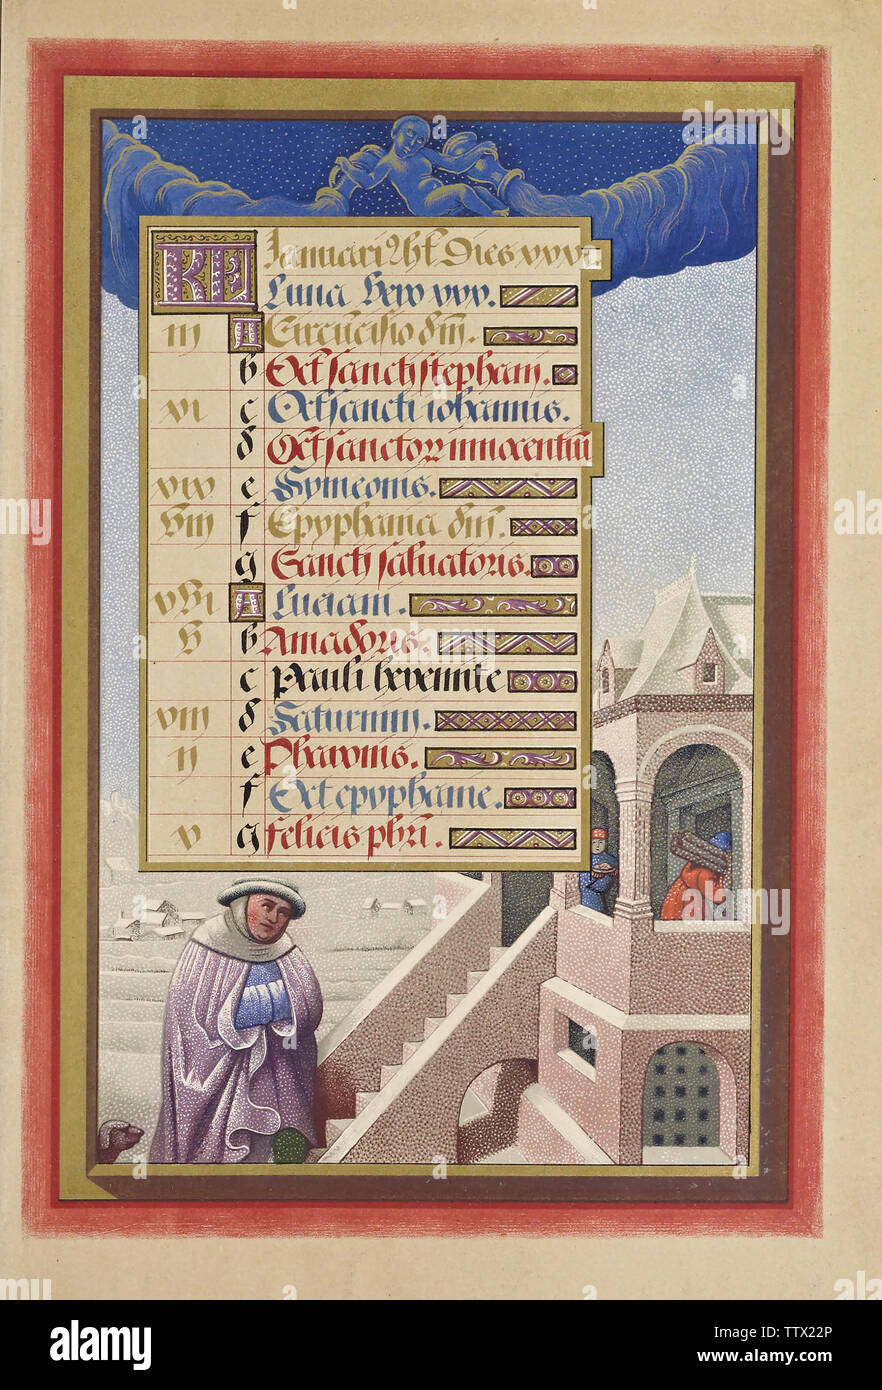 KL Januari9 hꝫt Dies xxxi
Luna vero xxx.
iii A Circūcisio dm̄.
b Oct̄ sancti stephani.
xi c Oct sancti iohannis.
d Oct̄ sanctorꝝ innocentiū
xix e Symeonis.
viii f Epyphania dm̄.
g Sancti saluatoris.
xvi A Luciani.
v b Amadoris.
c Pauli heremite
xiii d Saturnini.
ii e Pharonis.
f Oct epyphanie.
x g felicis pbr̄i.
alamy
a
alamy
Image ID: TTX22P
www.alamy.com